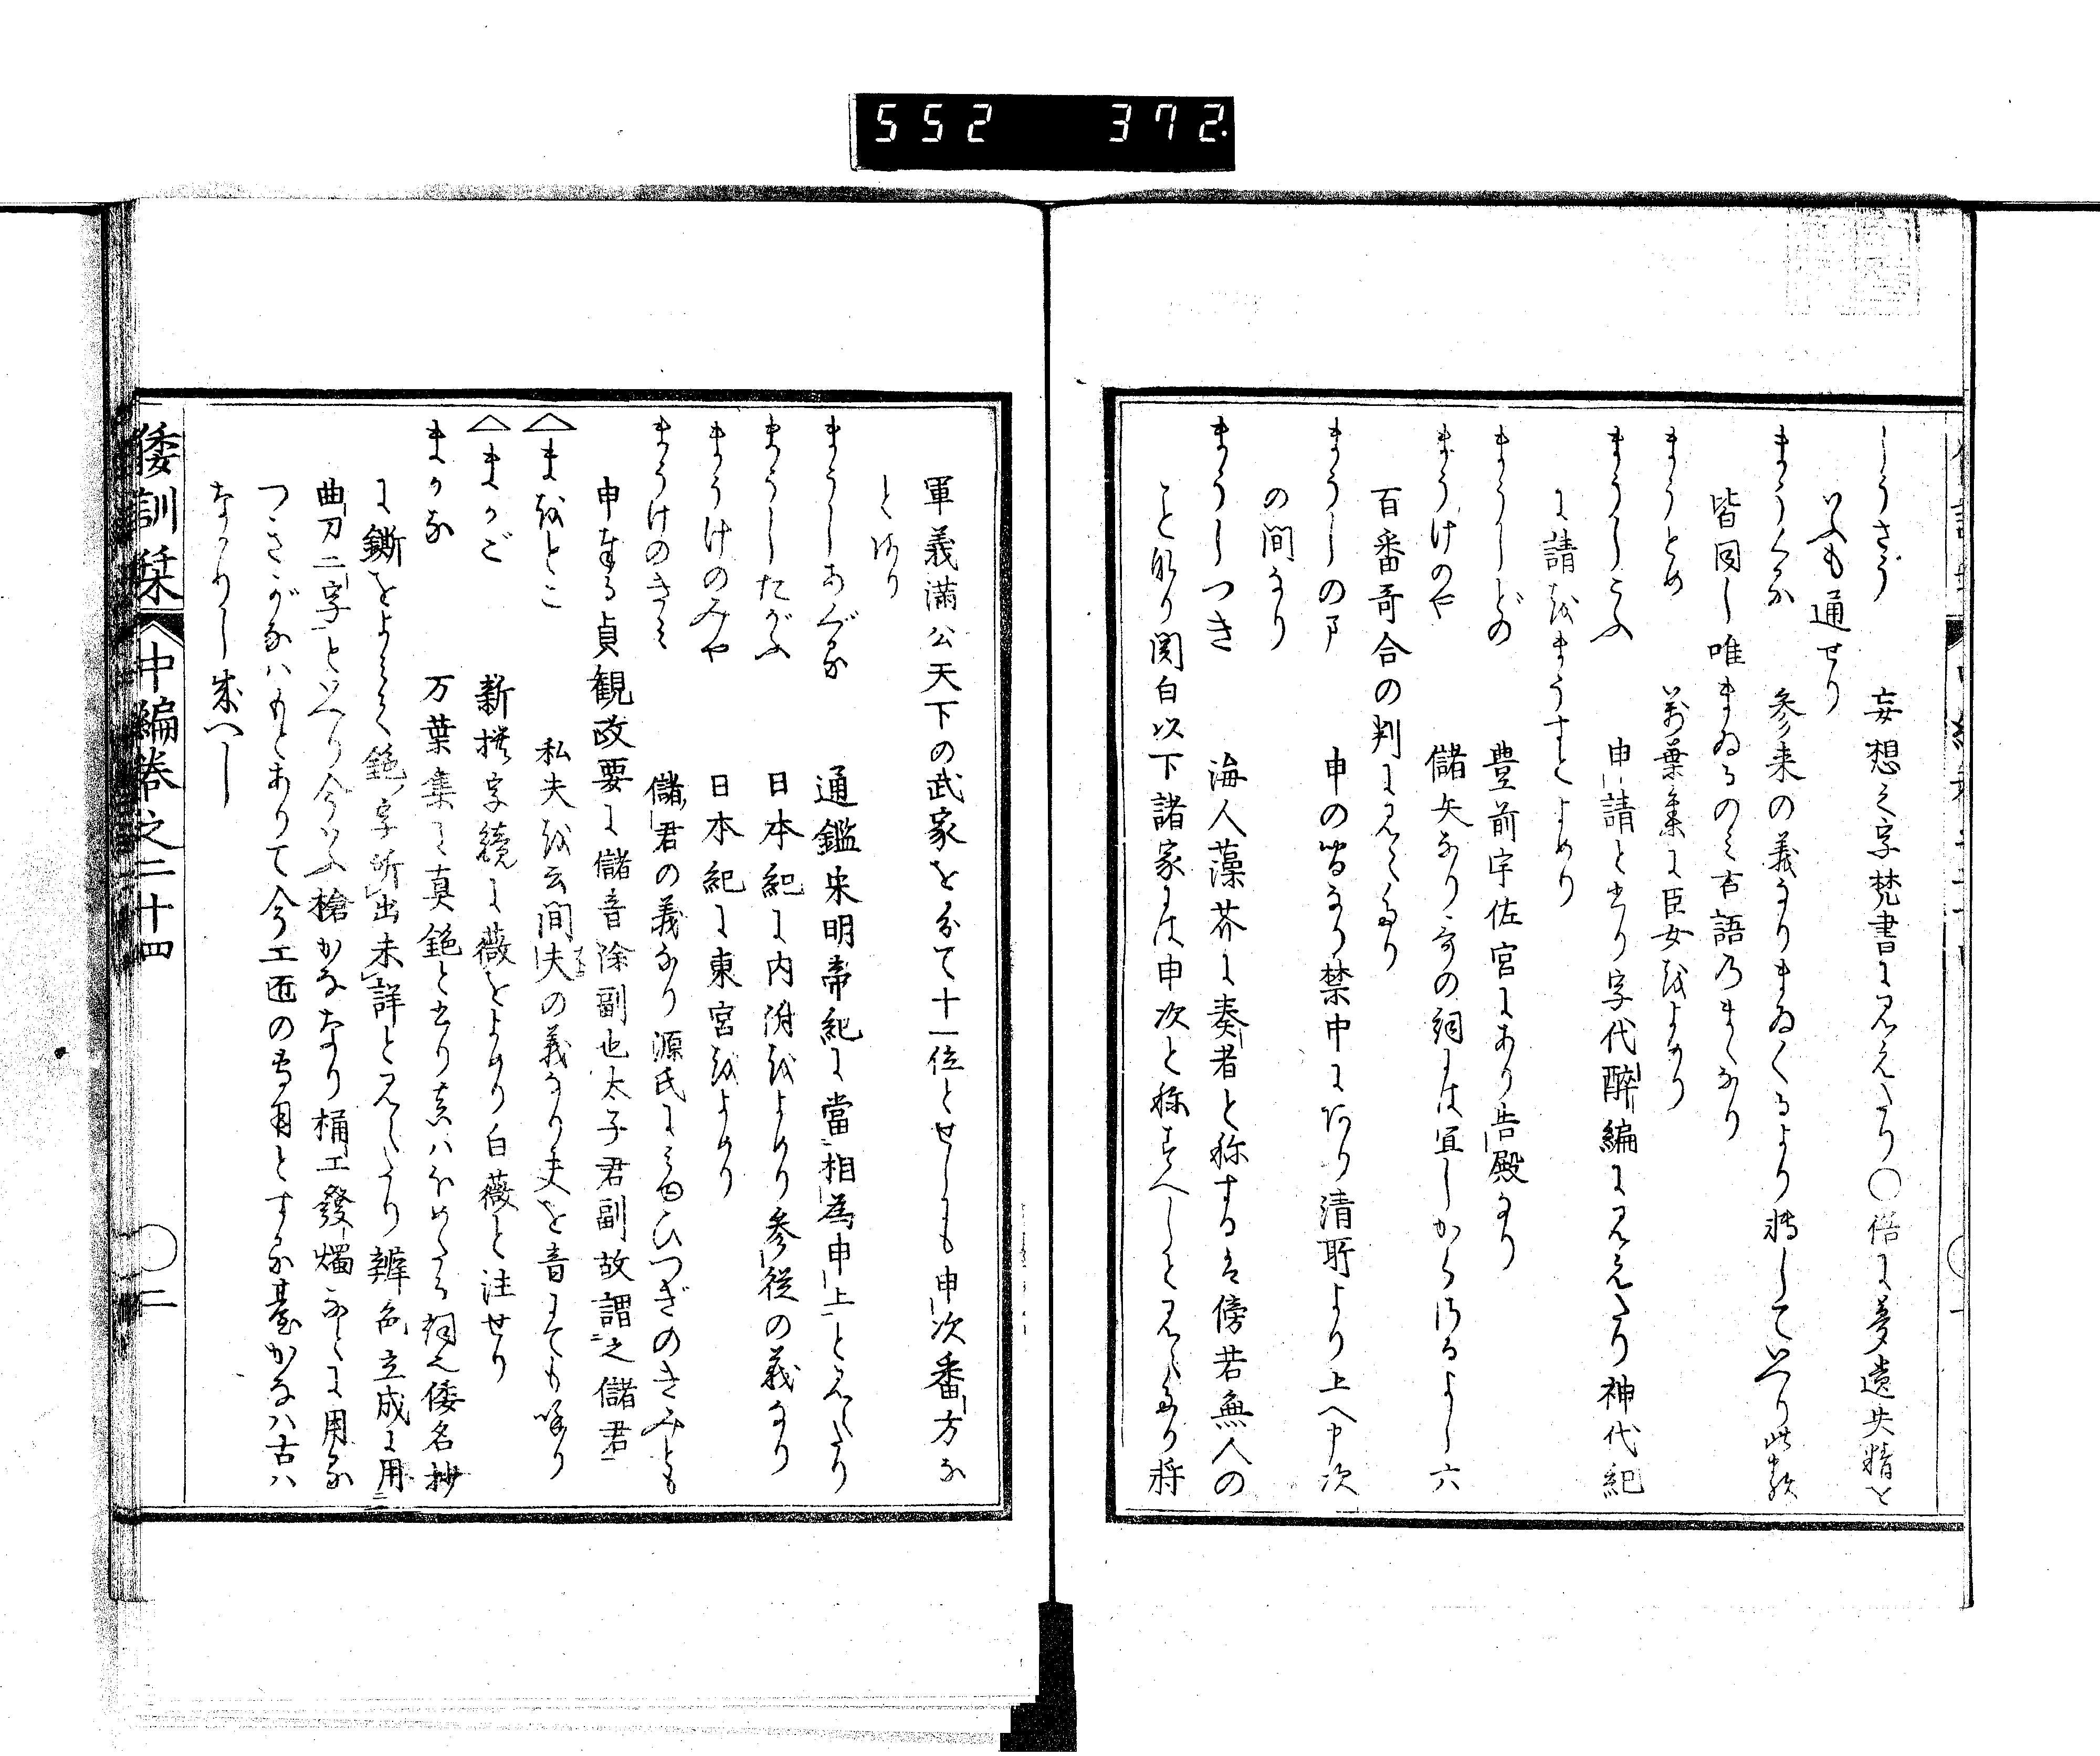 552 372
まうさう 妄想之字梵書に見えたり○俗に夢遺失精を
いふも通せり
まうくる 参来の義なりまゐくるより転していへり此類
皆同し唯まゐるのミ古語乃まゝなり
まうとめ 万葉集に臣女をよめり
まうしこふ 申請と書り字代醉編に見えたり神代紀
に請をまうすとよめり
まうしどの 豊前宇佐宮にあり告殿なり
まうけのや 儲矢なり今の詞には宜しからさるよし六
百番哥合の判に見えたり
まうしの口 申の口なり禁中にあり清所より上へ申次
の間なり
まうしつき 海人藻芥に奏者と称するは傍若無人の
こと也り関白以下諸家には申次と称すへしと見えたり将
軍義満公天下の武家を分て十一位とせしにも申次番方な
と有り
まうしあぐる 通鑑宋明帝紀に當相為申上と見えたり
まうしたがふ 日本紀に内附をよめり参従の義なり
まうけのみや 日本紀に東宮をよめり
まうけのきミ 儲君の義なり源氏にミゆひつぎのきみとも
申奉る貞観政要に儲音除副也太子君副故謂之儲君
まをとこ 私夫を云間夫の義なり夫を音にても呼り
まかご 新撰字鏡に薇をよめり白薇と注せり
まかな 万葉集に真鉋と書り真ハほめたる詞也倭名抄
に鐁をよミて鉋字所出未詳と見えたり辨色立成に用
曲刀二字といへり今いふ槍かななり桶工發燭なとに用る
つきがなハもとありて今工匠の専用とする臺かなハ古ハ
なかりし成へし
倭訓栞 中編巻之二十四 ○二